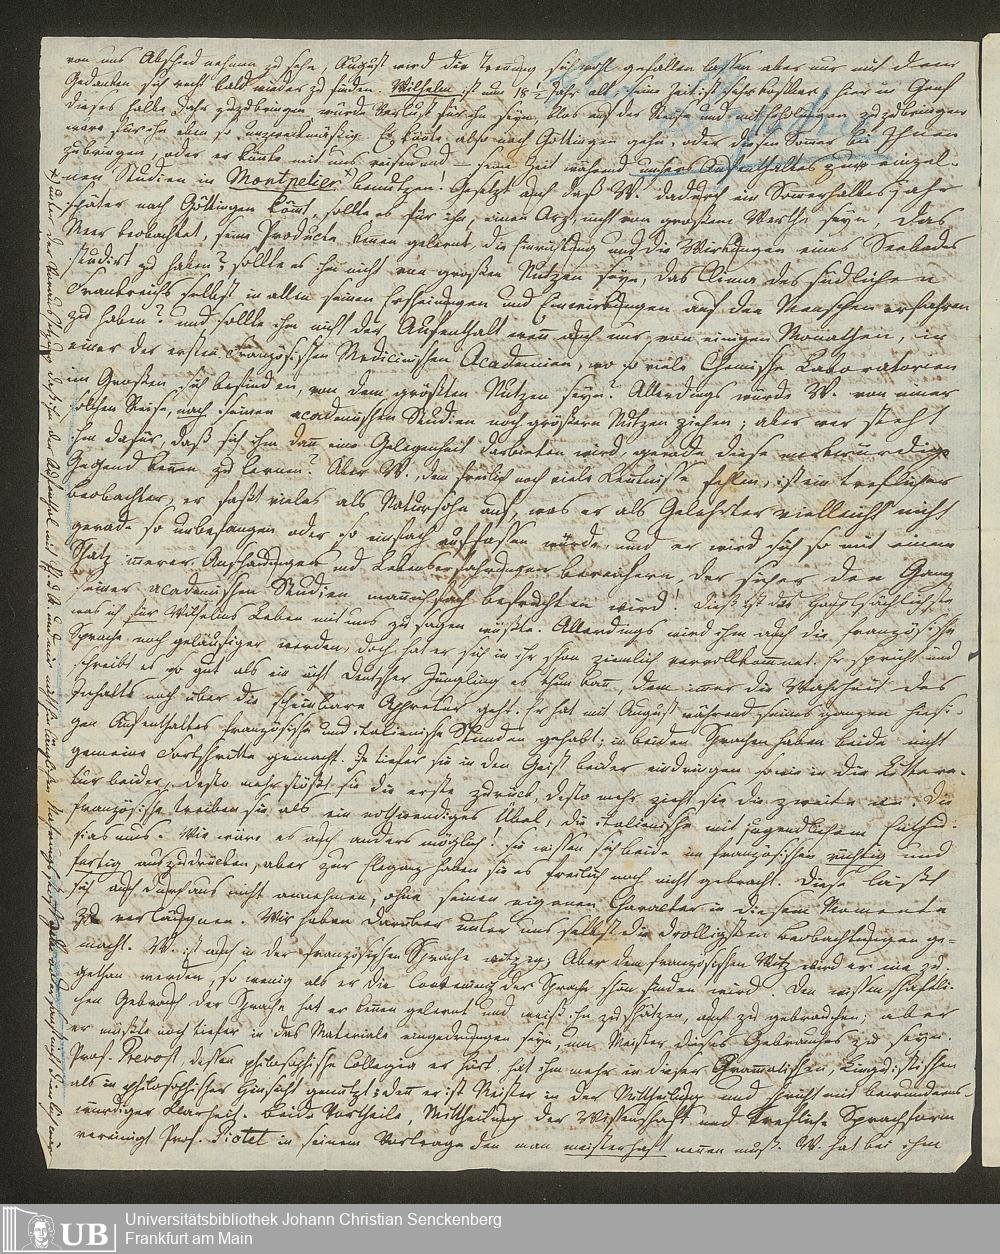 von uns Abschied nehmen zu sehn, August wird die Trennung sich wohl gefallen lassen aber nur mit dem
Gedanken sich recht bald wieder zu finden. Wilhelm ist nun 18½ Jahr alt, seine Zeit ist sehr kostbar, hier in Genf
dieses halbe Jahr zuzubringen würde Verlust für ihn seyn, blos auf der Reise und mit zuzubringen
wäre für ihn eben so unzweckmäßig. Er könte also nach Göttingen gehn, oder diesen Somer bei Ihnen
zubringen, oder er könte mit uns reisen und – seine Zeit während unsers Aufenthaltes zu einzel-
nen Studien in Montpelier x) benutzen! Gesetzt auch daß W. dadurch ein Somerhalbes jahr
später nach Göttingen kömt, sollte es für ihn, einen Arzt, nicht von großem Werthe seyn, das
Meer beobachtet, seine Producte kenen gelernt, die Einrichtung und die Wirkungen eines Seebades
studirt zu haben? sollte es ihm nicht von großen Nutzen seyn, das Clima des südlichen
Frankreichs selbst in allen seinen Erscheinungen und Einwirkungen auf den Menschen erfahren
zu haben? und sollte ihm nicht der Aufenthalt wenn auch nur von einigen Monathen, in
einer der ersten französischen Medicinischen Academien, wo so viele Chemische Laboratorien
im Großen sich befinden, von dem größten Nutzen seyn? Allerdings würde W. von einer
solchen Reise, nach seinen academischen Studien noch größern Nutzen ziehen; aber wer steht
ihm dafür, daß sich ihm dan eine Gelegenheit darbieten wird, gerade diese merkwürdige
Gegend kenen zu lernen? Aber W., dem freilich noch viele Kentnisse fehlen, ist ein treflicher
Beobachter, er faßt vieles als Natursohn auf, was er als Gelehrter vielleicht nicht
gerade so unbefangen oder so einfach auffassen würde, und er wird sich so mit einem
Schatz inerer Anschauungen und Lebenserfahrungen bereichern, der sicher den Gang
seiner academischen Studien manichfach befruchten wird! Dieß ist das Hauptsächlichste
was ich für Wilhelms Leben mit uns zu sagen wüßte. Allerdings wird ihm auch die französische
Sprache noch geläufiger werden, doch hat er sich in ihr schon ziemlich vervollkomnet. Er spricht und
schreibt es so gut als ein ächt deutscher Jüngling es thun kan, dem imer die Wahrheit des
Inhalts noch über die scheinbare geht. Er hat mit August während seines ganzen hiesi-
gen Aufenthaltes französische und italienische Stunden gehabt; in beiden Sprachen haben beide nicht
gemeine Fortschritte gemacht. Je tiefer sie in den Geist beider eindringen so wie in die Littera-
tur beider, desto mehr stößt sie die erste zurück, desto mehr zieht sie die zweite an. Die
französische treiben sie als ein nothwendiges Übel, die italienische mit jugendlichem Enthu-
siasmus. Wie wäre es auch anders möglich! Sie wissen sich beide im französischen richtig und
fertig auszudrücken, aber zur Eleganz haben sie es freilich noch nicht gebracht. Diese läßt
sich auch durchaus nicht annehmen, ohne seinen eigenen Charakter in diesem Momente
zu verläugnen. Wir haben darüber unter uns selbst die drolligsten Beobachtungen ge-
macht. W. ist auch in der französischen Sprache witzig; Aber dem französischen Witz wird er nie zu-
gethan werden, so wenig als er die der Sprache schön finden wird. Den wissenschaftli-
chen Gebrauch der Sprache hat er kenen gelernt und weiß ihn zu schätzen, auch zu gebrauchen; aber
er müßte noch tiefer in das Materiale eingedrungen seyn, um Meister dieses Gebrauches zu seyn.
Prof. Prevost, dessen philosophische Collegia er hört, hat ihm mehr in dieser Gramatischen, Linguistischen
als in philosophischer Hinsicht genutzt; den er ist Meister in der Mittheilung und spricht mit bewunderns-
würdiger Klarheit. Beide Vortheile, Mittheilung der Wissenschaft und trefliche Sprachform
vereinigt Prof. Pictet in seinem Vortrage den man meisterhaft nenen muß. W. hat bei ihm
x) unter der Voraussetzung daß ihm der Aufenthalt
UB
Universitätsbibliothek Johann Christian Senckenberg
Frankfurt am Main